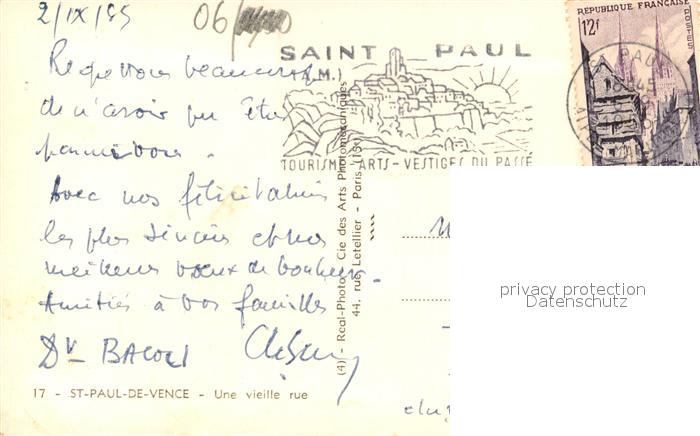 2/IX/55
06
SAINT PAUL
(A.M.)
TOURISME - ARTS - VESTIGES DU PASSÉ
RÉPUBLIQUE FRANÇAISE
POSTES
12F
Regrettons beaucoup
de n'avoir pu être
parmi vous.
Avec nos félicitations
les plus sincères et nos
meilleurs voeux de bonheur.
Amitiés à vos familles
Dr
(4) - Real-Photo, Cie des Arts Photomécaniques
44, rue Letellier - Paris (15e)
17 - ST-PAUL-DE-VENCE - Une vieille rue
privacy protection
Datenschutz